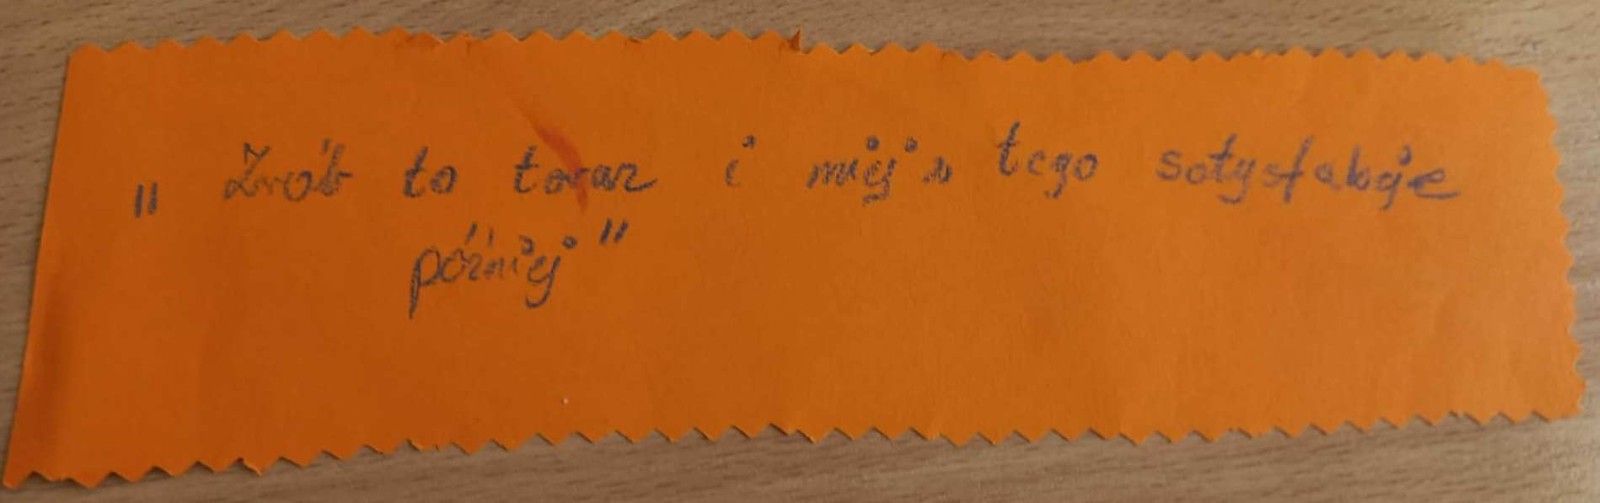 " Zrób to teraz i miej z tego satysfakcję
później "